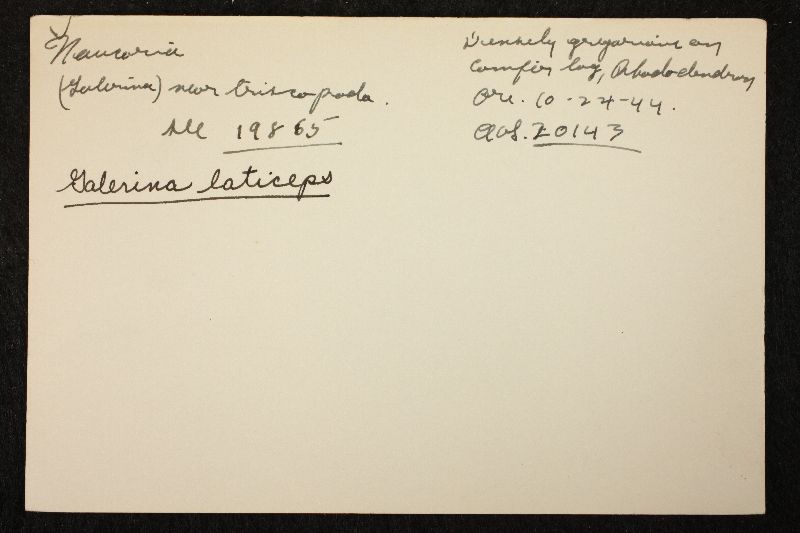 Naucoria
(Galerina) near triscopoda.
see 19865
Galerina laticeps
Densely gregarious on
conifer log, Rhododendron
Ore. 10-24-44.
AHS. 20143